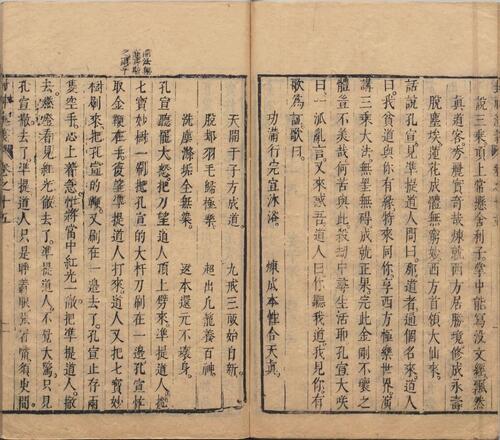 說三乘項上常懸舍利子掌中能寫沒文經飄然
真道客秀麗實奇哉煉就西方居勝境修成永壽
脫塵埃蓮花成體無窮妙西方首領大仙來
話說孔宣見準提道人問曰那道者通個名來道人
曰我貧道與你有緣特來同你享西方極樂世界演
講三乘大法無罣無碍成就正果完此金剛不壞之
體豈不美哉何苦與此殺劫中尋生活耶孔宣大咲
曰一派亂言又來惑吾道人曰你聽我道我見你有
歌爲証歌曰
功滿行完宜沐浴 煉成本性合天真
天開于子方成道 九戒三皈始自新
脫卻羽毛歸極樂 超出凡籠養百神
洗塵滌垢全無染 返本還元不壞身
孔宣聽罷大怒把刀望道人頂上劈來準提道人將
七寶妙樹一刷把孔宣的大杆刀刷在一邊孔宣忙
取金鞭在手復望準提道人打來道人又把七寶妙
樹刷來把孔宣的鞭又刷在一邊去了孔宣止存兩
隻空手心上着急忙將當中紅光一撒把準提道人撒
去燃燈看見紅光撒去了準提道人不覺大驚只見
孔宣撒去了準提道人只是睜着眼張着嘴須臾間
卷之十五